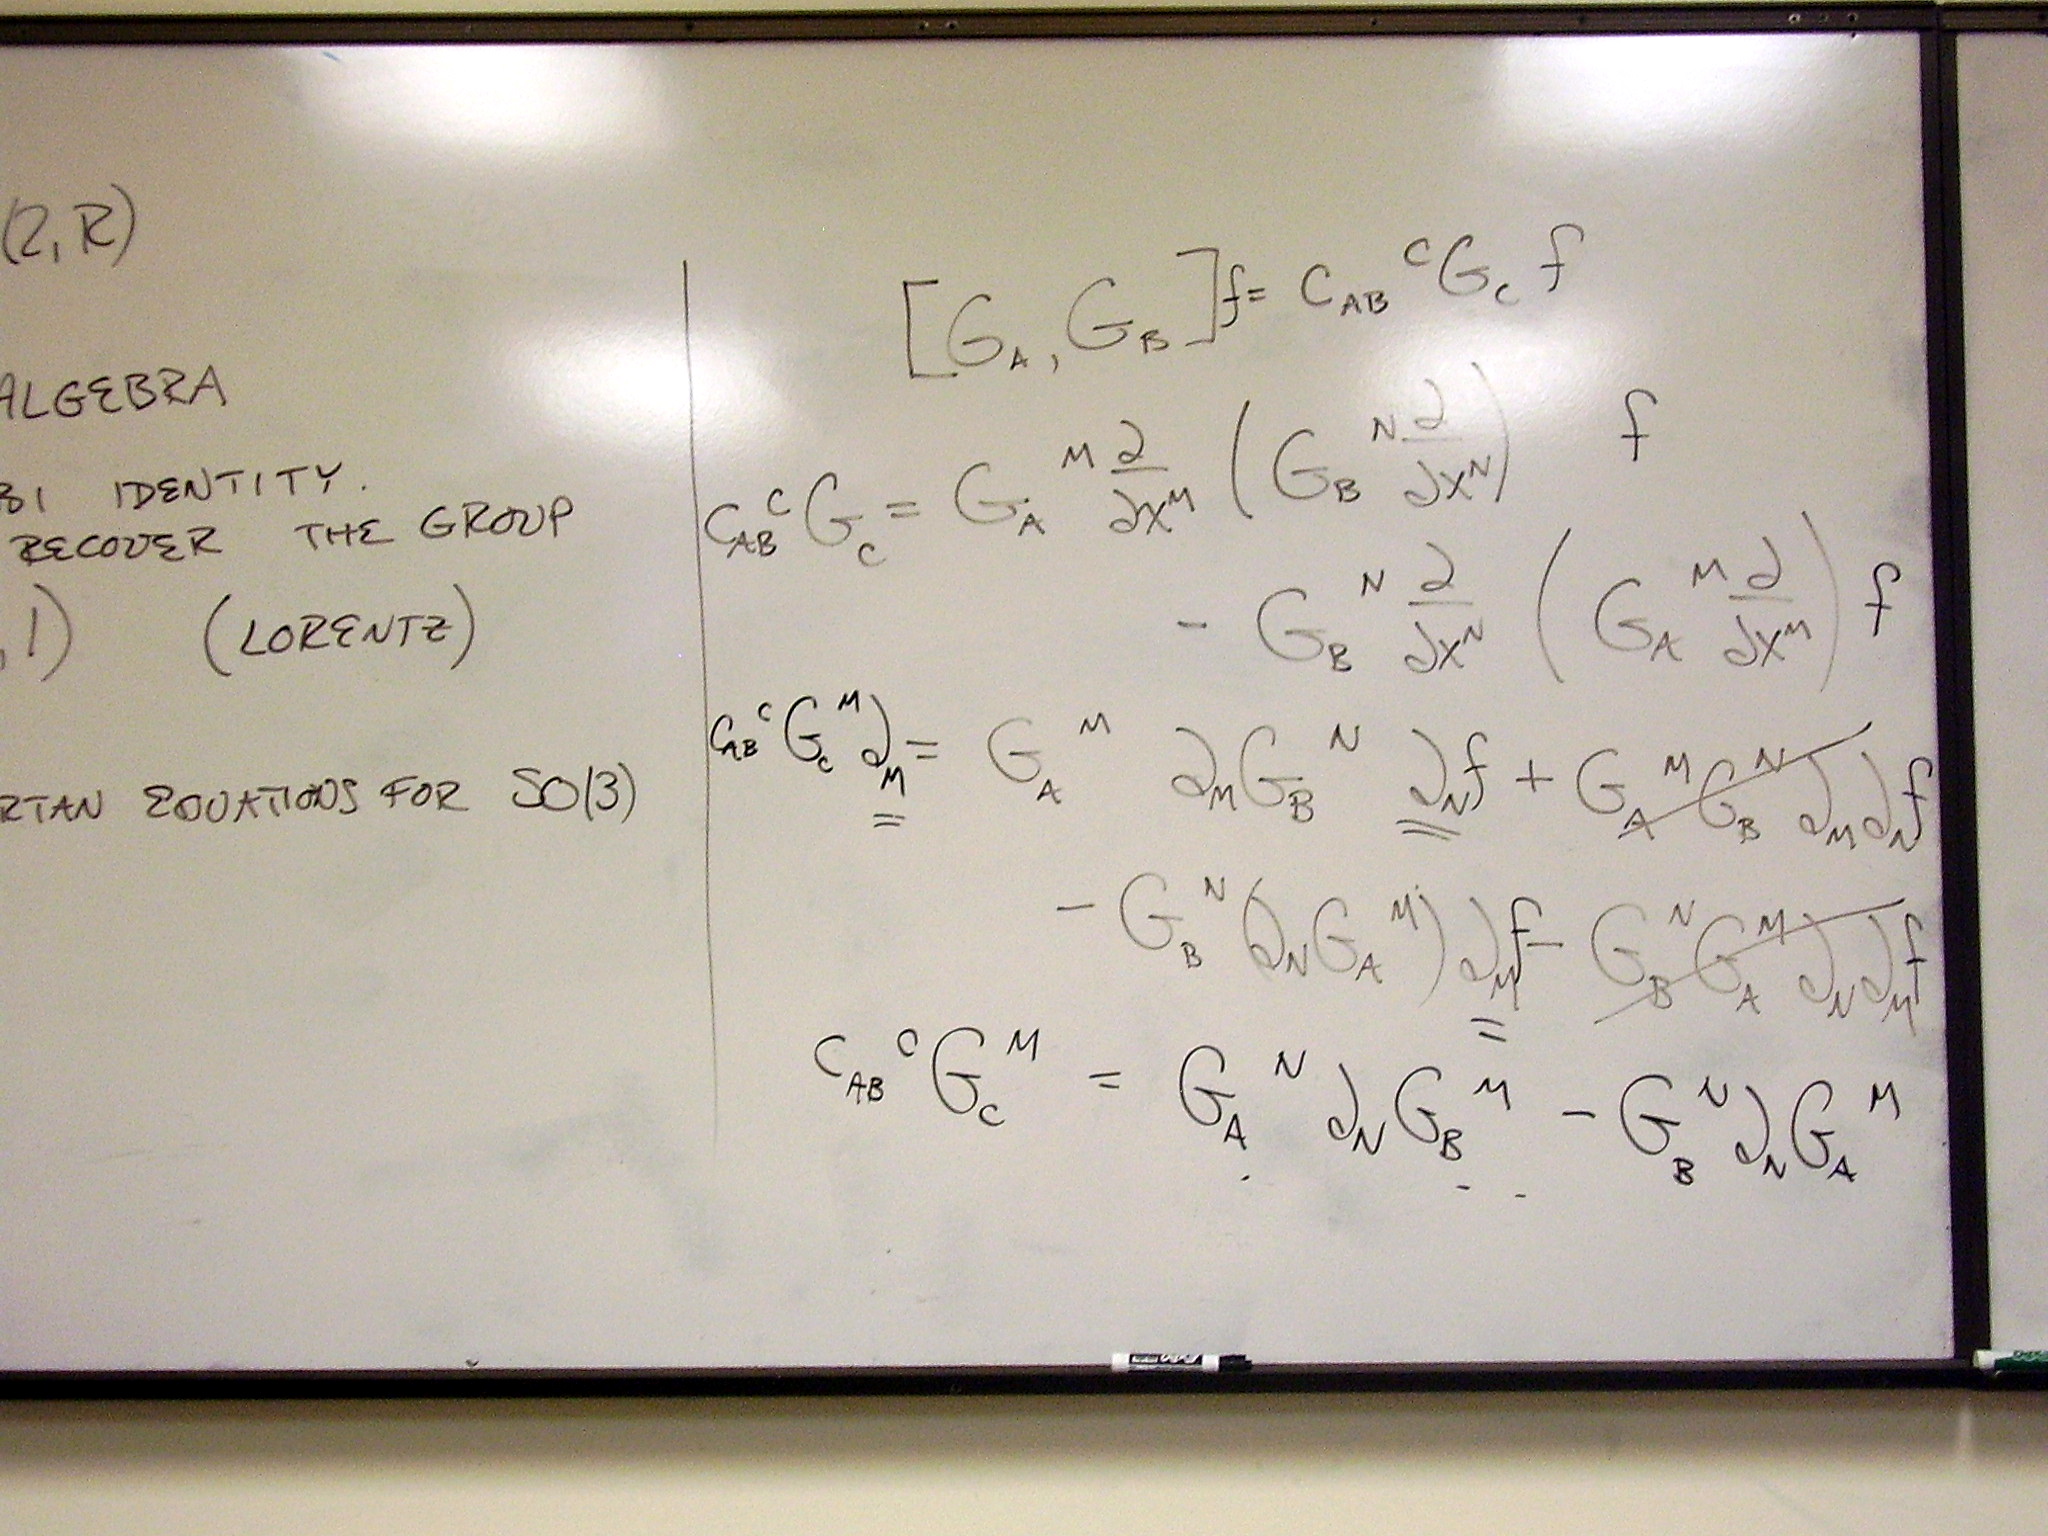 (2,R)
ALGEBRA
BI IDENTITY.
RECOVER THE GROUP
,1) (LORENTZ)
RTAN EQUATIONS FOR SO(3)
[G_A, G_B]f = c_{AB}^C G_C f
c_{AB}^C G_C = G_A^M ∂/∂x^M (G_B^N ∂/∂x^N) f
- G_B^N ∂/∂x^N (G_A^M ∂/∂x^M) f
c_{AB}^C G_C^M ∂_M = G_A^M ∂_M G_B^N ∂_N f + G_A^M G_B^N ∂_M ∂_N f
- G_B^N (∂_N G_A^M) ∂_M f - G_B^N G_A^M ∂_N ∂_M f
c_{AB}^C G_C^M = G_A^N ∂_N G_B^M - G_B^N ∂_N G_A^M